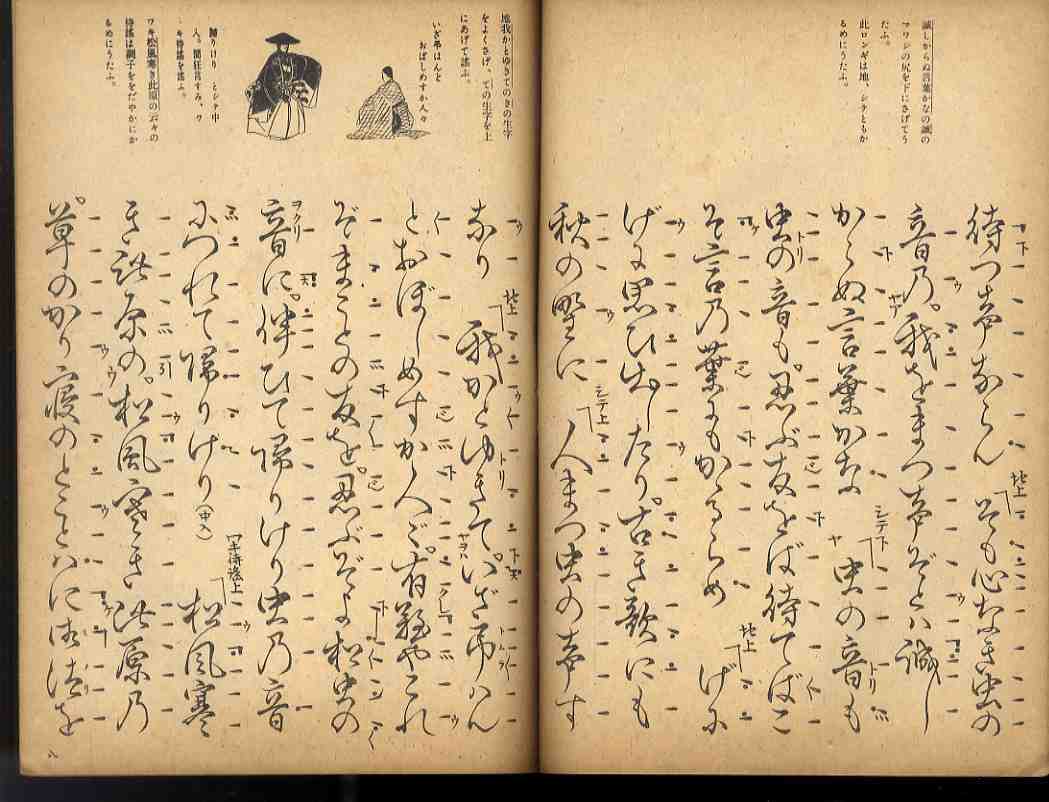 誠しからぬ言葉かなの誠の
シの尻を下にさげてう
たふ。
此ロンギは地、シテともか
るめにうたふ。
待つ声ならん
地上
そも心なき虫の
音乃。我をまつ声ぞとハ誠し
からぬ言葉かな
シテ下
虫の音も
虫の音も。忍ぶ友をば待てばこ
そ言乃葉にもかゝるらめ
地上
げに
げに思ひ出したり。古き歌にも
秋の野に
シテ上
人まつ虫の声す
地我かとゆきてのきの生字
をよくさげ、ての生字を上
にあげて謡ふ。
いざ弔はんと
おぼしめすか人々
帰りけり とシテ中
入。間狂言すみ、ワ
キ待謡を謡ふ。
ワキ松風寒き此原の云々の
待謡は調子をおだやかにか
るめにうたふ。
なり
地上
我かとゆきて。いざ弔ハん
とおぼしめすか人々。有難やこれ
ぞまことの友を。忍ぶぞよ松虫の
音に。伴ひて帰りけり虫乃音
につれて帰りけり(中入)
ワキ待謡上
松風寒
き此原の。松風寒き此原乃
草のかり寝のとことハに御法を
八